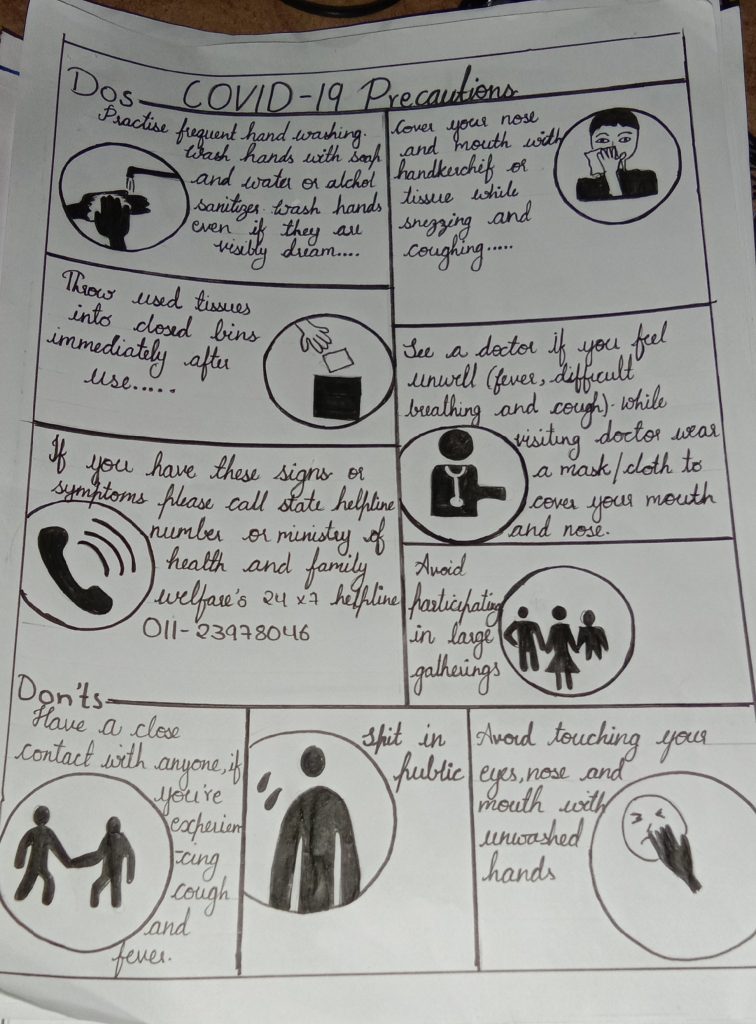 COVID-19 Precautions
Dos
Practise frequent hand washing.
Wash hands with soap
and water or alchol
sanitizer. Wash hands
even if they are
visibly dream....
Cover your nose
and mouth with
handkerchif or
tissue while
snezzing and
coughing.....
Throw used tissues
into closed bins
immediately after
use.....
See a doctor if you feel
unwell (fever, difficult
breathing and cough). While
visiting doctor wear
a mask/cloth to
cover your mouth
and nose.
If you have these signs or
symptoms please call state helpline
number or ministry of
health and family
welfare's 24 x7 helpline
011-23978046
Avoid
participating
in large
gatherings
Don'ts
Have a close
contact with anyone, if
you're
experien
-cing
cough
and
fever.
Spit in
public
Avoid touching your
eyes, nose and
mouth with
unwashed
hands